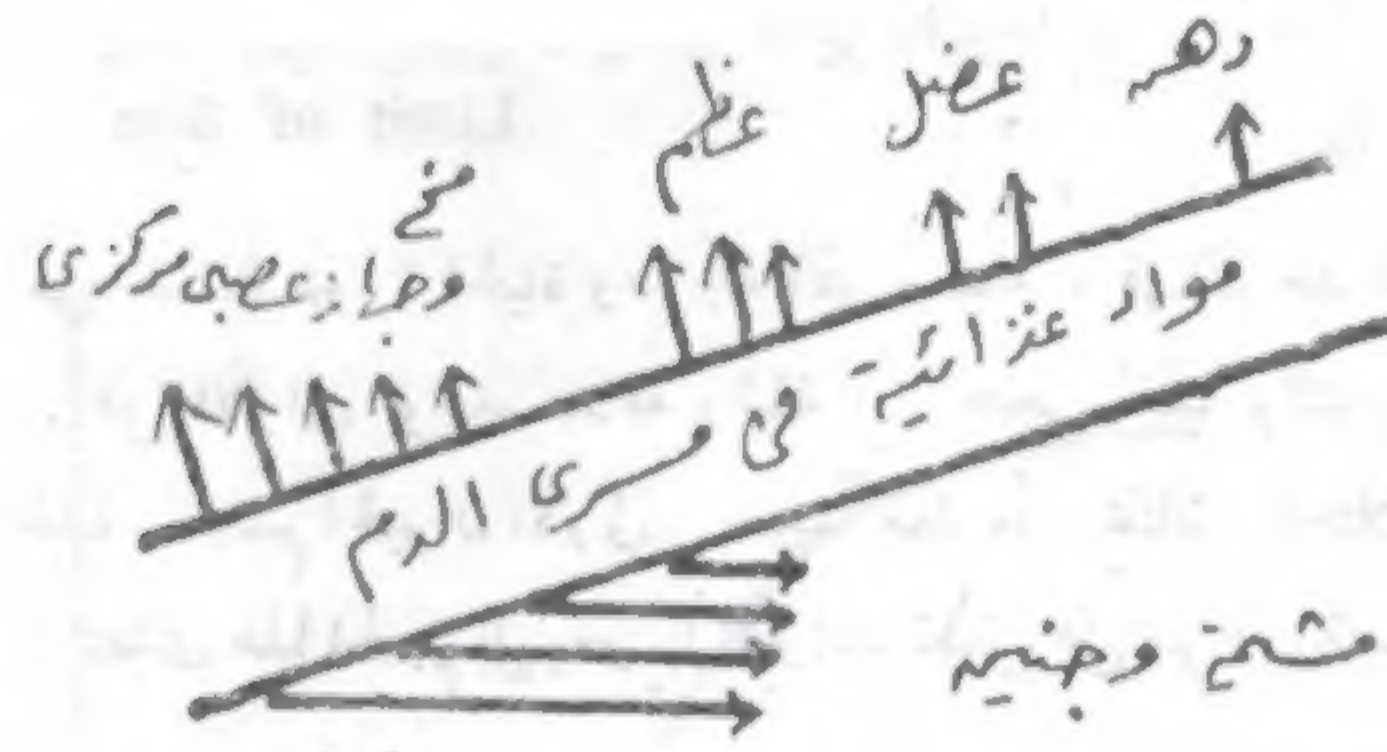 دهن
عضل
عظم
مخ
وجهاز عصبى مركزى
مواد غذائية فى مسرى الدم
مشيمة وجنين